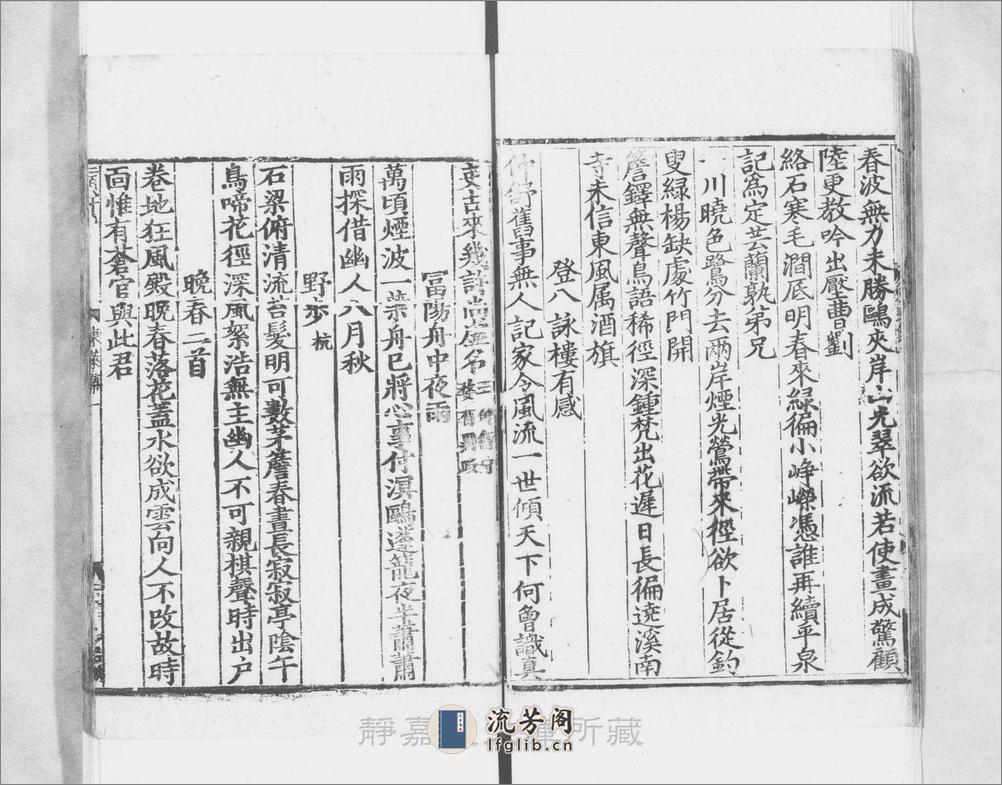 春波無力未勝鷗夾岸山光翠欲流若使畫成驚顧
陸更教吟出壓曹劉
絡石寒毛澗底明春來緑徧小崢嶸憑誰再續平泉
記為定芸蘭孰弟兄
一川曉色鷺分去兩岸煙光鶯帶來徑欲卜居從釣
叟緑楊缺處竹門開
簷鐸無聲鳥語稀徑深鍾梵出花遲日長徧遶溪南
寺未信東風属酒旗
登八詠樓有感
仲舒舊事無人記家令風流一世傾天下何曾識真
吏古來幾許尚虛名
冨陽舟中夜雨
萬頃煙波一葉舟已將心事付溟鷗蓬籠夜半蕭蕭
雨探借幽人八月秋
野步杭
石梁俯清流苔髮明可數茅簷春晝長寂寂亭陰午
鳥啼花徑深風絮浩無主幽人不可親棋聲時出户
晩春二首
卷地狂風殿晩春落花蓋水欲成雲向人不改故時
面惟有蒼官與此君
靜嘉
所藏
流芳阁
lfglib.cn